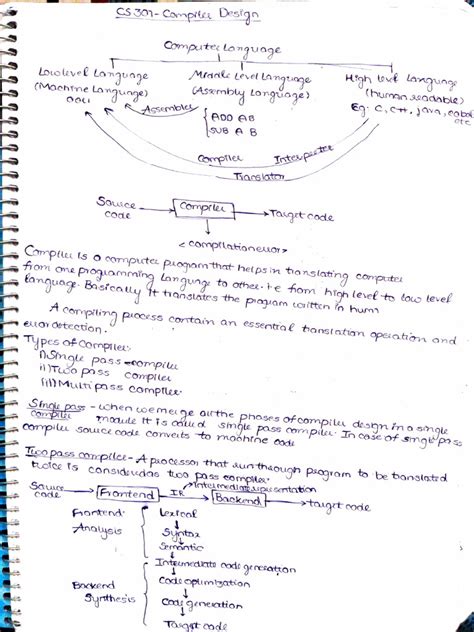 CS 301 - Compiler Design
Computer Language
Low level Language
(Machine Language)
0011
Middle Level Language
(Assembly Language)
{ ADD AB
SUB A B
High level Language
(human readable)
Eg: C, C++, java, cobol
etc
Assembler
Compiler Interpreter
Translator
Source code → Compiler → Target code
< compilation error >
Compiler is a computer program that helps in translating computer
from one programming language to other. i.e from high level to low level
language. Basically it translates the program written in hum
A compiling process contain an essential translation operation and
error detection.
Types of Compiler:
i) Single pass compiler
ii) Two pass compiler
iii) Multi pass compiler
Single pass compiler - when we merge all the phases of compiler design in a single
module it is called single pass compiler. In case of single pass
compiler source code converts to machine code
Two pass compiler - A processor that run through program to be translated
twice is considered as two pass compiler.
Source code → Frontend → IR → Backend → target code
Intermediate representation
Frontend:
Analysis
Lexical
Syntax
Semantic
Backend
Synthesis
Intermediate code generation
Code optimization
Code generation
Target code